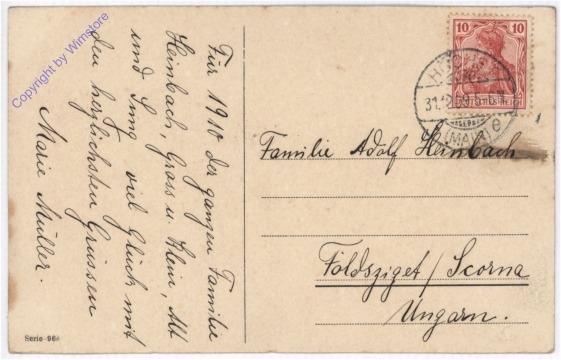 Copyright by Winstore
Für 1910 der ganzen Familie
Heinbach, Gross u. Klein, Alt
und Jung viel Glück mit
den herzlichsten Grüssen
Marie Müller.
10 10
DEUTSCHES REICH
HÖCHST
31.12.09.5
(MAIN) e
Familie Adolf Heinbach
Földsziget / Scorna
Ungarn.
Serie 96